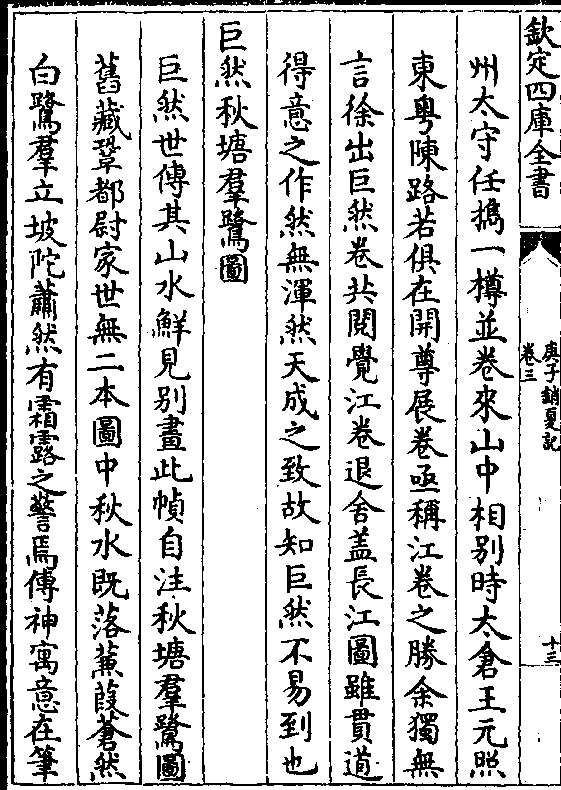 欽定四庫全書
庚子銷夏記
卷三
十三
州太守任攜一樽並卷來山中相別時太倉王元照
東粵陳路若俱在開尊展卷亟稱江卷之勝余獨無
言徐出巨然卷共閱覺江卷退舍蓋長江圖雖貫道
得意之作然無渾然天成之致故知巨然不易到也
巨然秋塘羣鷺圖
巨然世傳其山水鮮見別畫此幀自注秋塘羣鷺圖
舊藏鞏都尉家世無二本圖中秋水既落蒹葭蒼然
白鷺羣立坡陀蕭然有霜露之警焉傳神寓意在筆